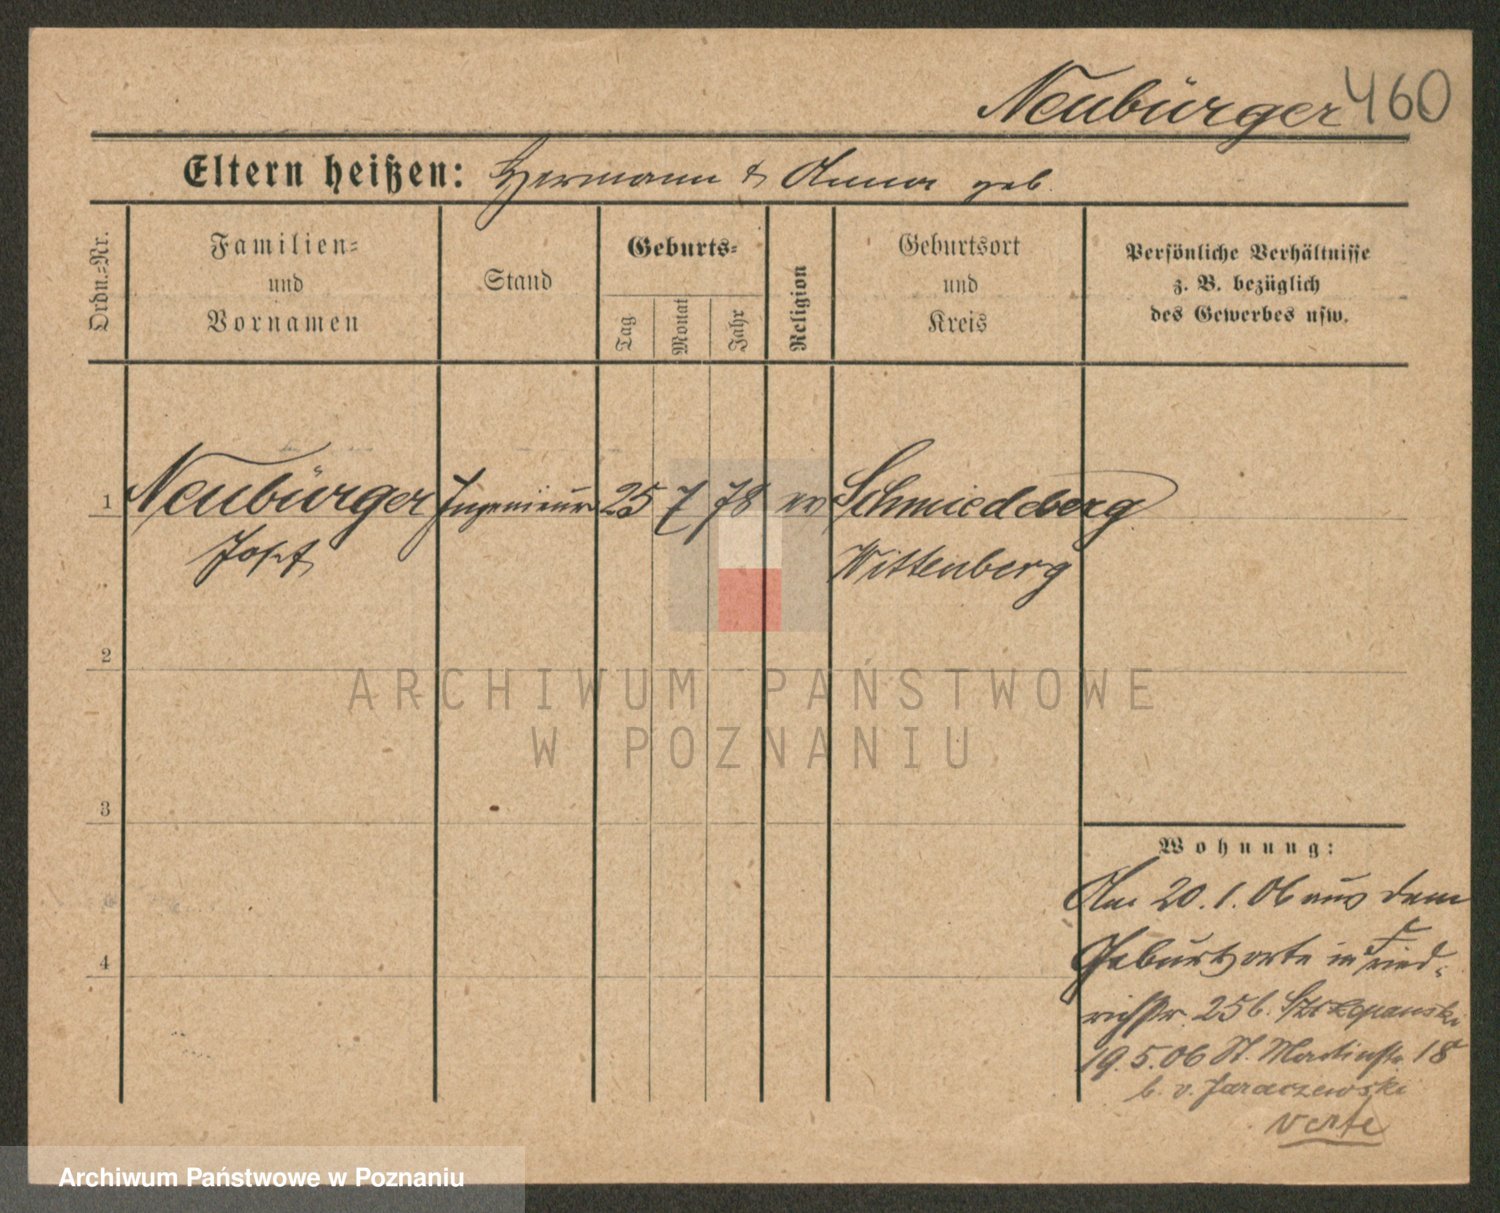 Neubürger 460
Eltern heißen: Hermann & Anna geb.
Ordn.-Nr.
Familien-
und
Vornamen
Stand
Geburts-
Tag
Monat
Jahr
Religion
Geburtsort
und
Kreis
Persönliche Verhältnisse
z. B. bezüglich
des Gewerbes usw.
1 Neubürger Ingenieur 25 7 78 ev Schmiedeberg
Josef Wittenberg
2
3
4
Wohnung:
Am 20.1.06 aus dem
Geburtsorte in Fried-
richstr. 25 b. Szczepanski
19.5.06 St. Martinstr 18
b. v. Jaraczewski
verte
ARCHIWUM PAŃSTWOWE
W POZNANIU
Archiwum Państwowe w Poznaniu